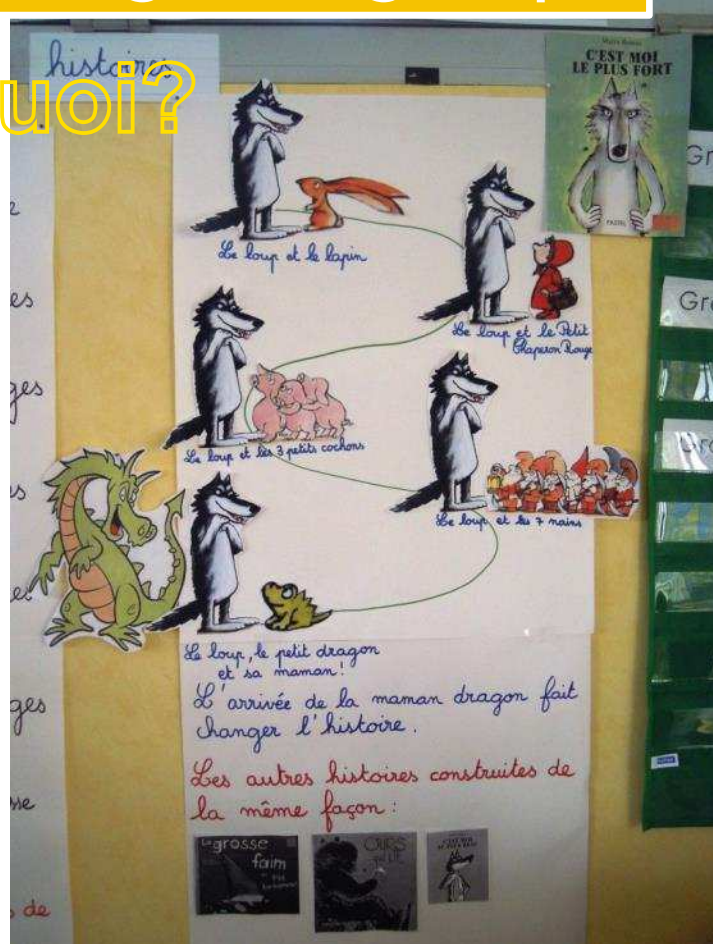 uoi?
histoires
Mario Ramos
C'EST MOI
LE PLUS FORT
PASTEL
Le loup et le lapin
Le loup et le Petit
Chaperon Rouge
Le loup et les 3 petits cochons
Le loup et les 7 nains
Le loup, le petit dragon
et sa maman!
L'arrivée de la maman dragon fait
changer l'histoire.
Les autres histoires construites de
la même façon :
La grosse
faim
OURS
qui lit
C'EST MOI
LE PLUS BEAU
es
ges
ges
de
Gr
Gro
Gro